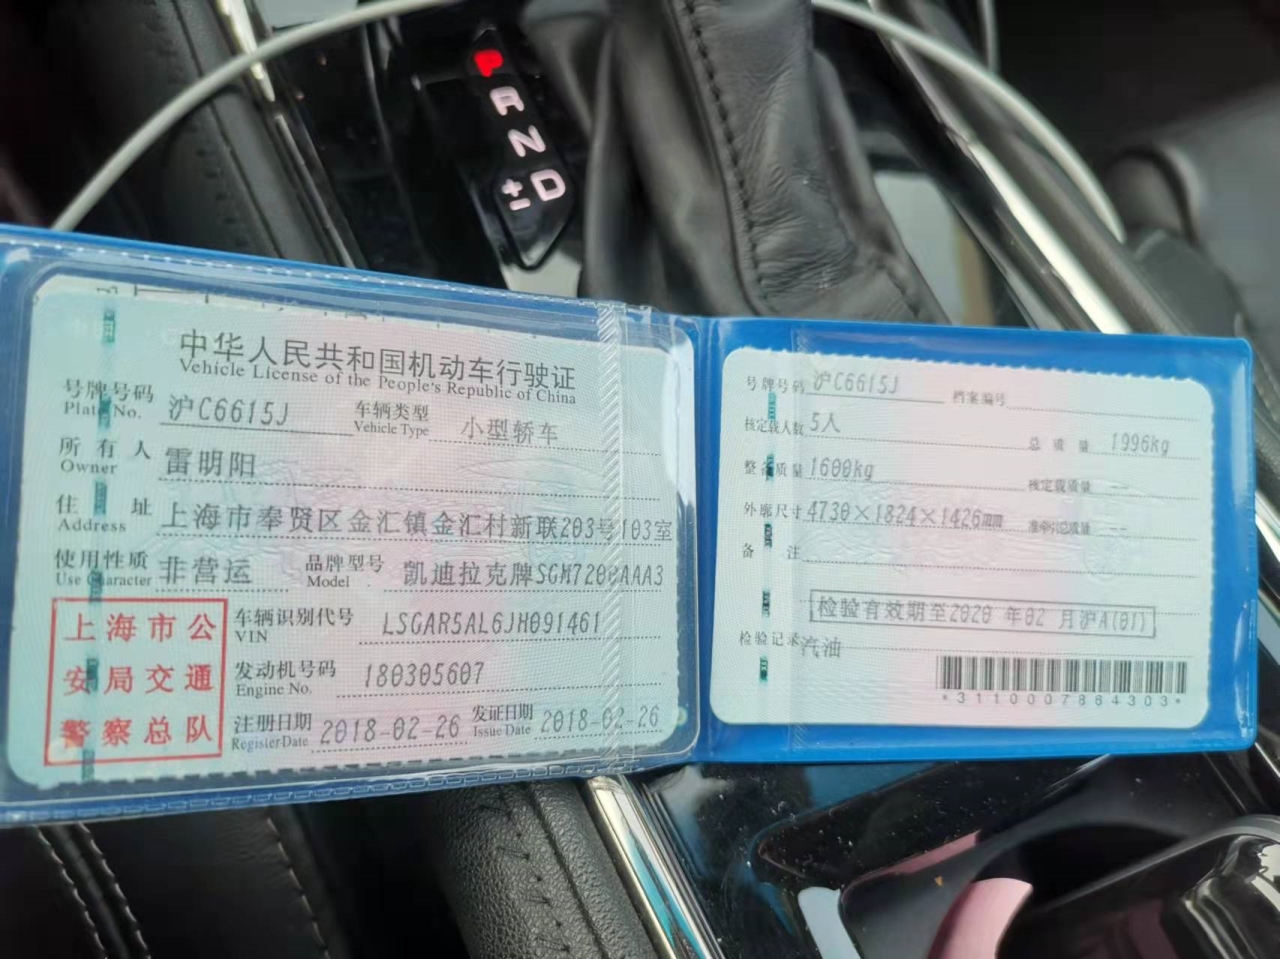 P
R
N
± D
中华人民共和国机动车行驶证
Vehicle License of the People's Republic of China
号牌号码 沪C6615J 车辆类型 小型轿车
Plate No. Vehicle Type
所有人 雷明阳
Owner
住址 上海市奉贤区金汇镇金汇村新联203号103室
Address
使用性质 非营运 品牌型号 凯迪拉克牌SGM7200AAA3
Use Character Model
上海市公
安局交通
警察总队
车辆识别代号 LSGAR5AL6JH091461
VIN
发动机号码 180305607
Engine No.
注册日期 2018-02-26 发证日期 2018-02-26
Register Date Issue Date
号牌号码 沪C6615J 档案编号
核定载人数 5人 总质量 1996kg
整备质量 1600kg 核定载质量 --
外廓尺寸 4730×1824×1426mm 准牵引总质量 --
备注
检验有效期至2020 年02 月沪A(01)
检验记录 汽油
*3110007864303*